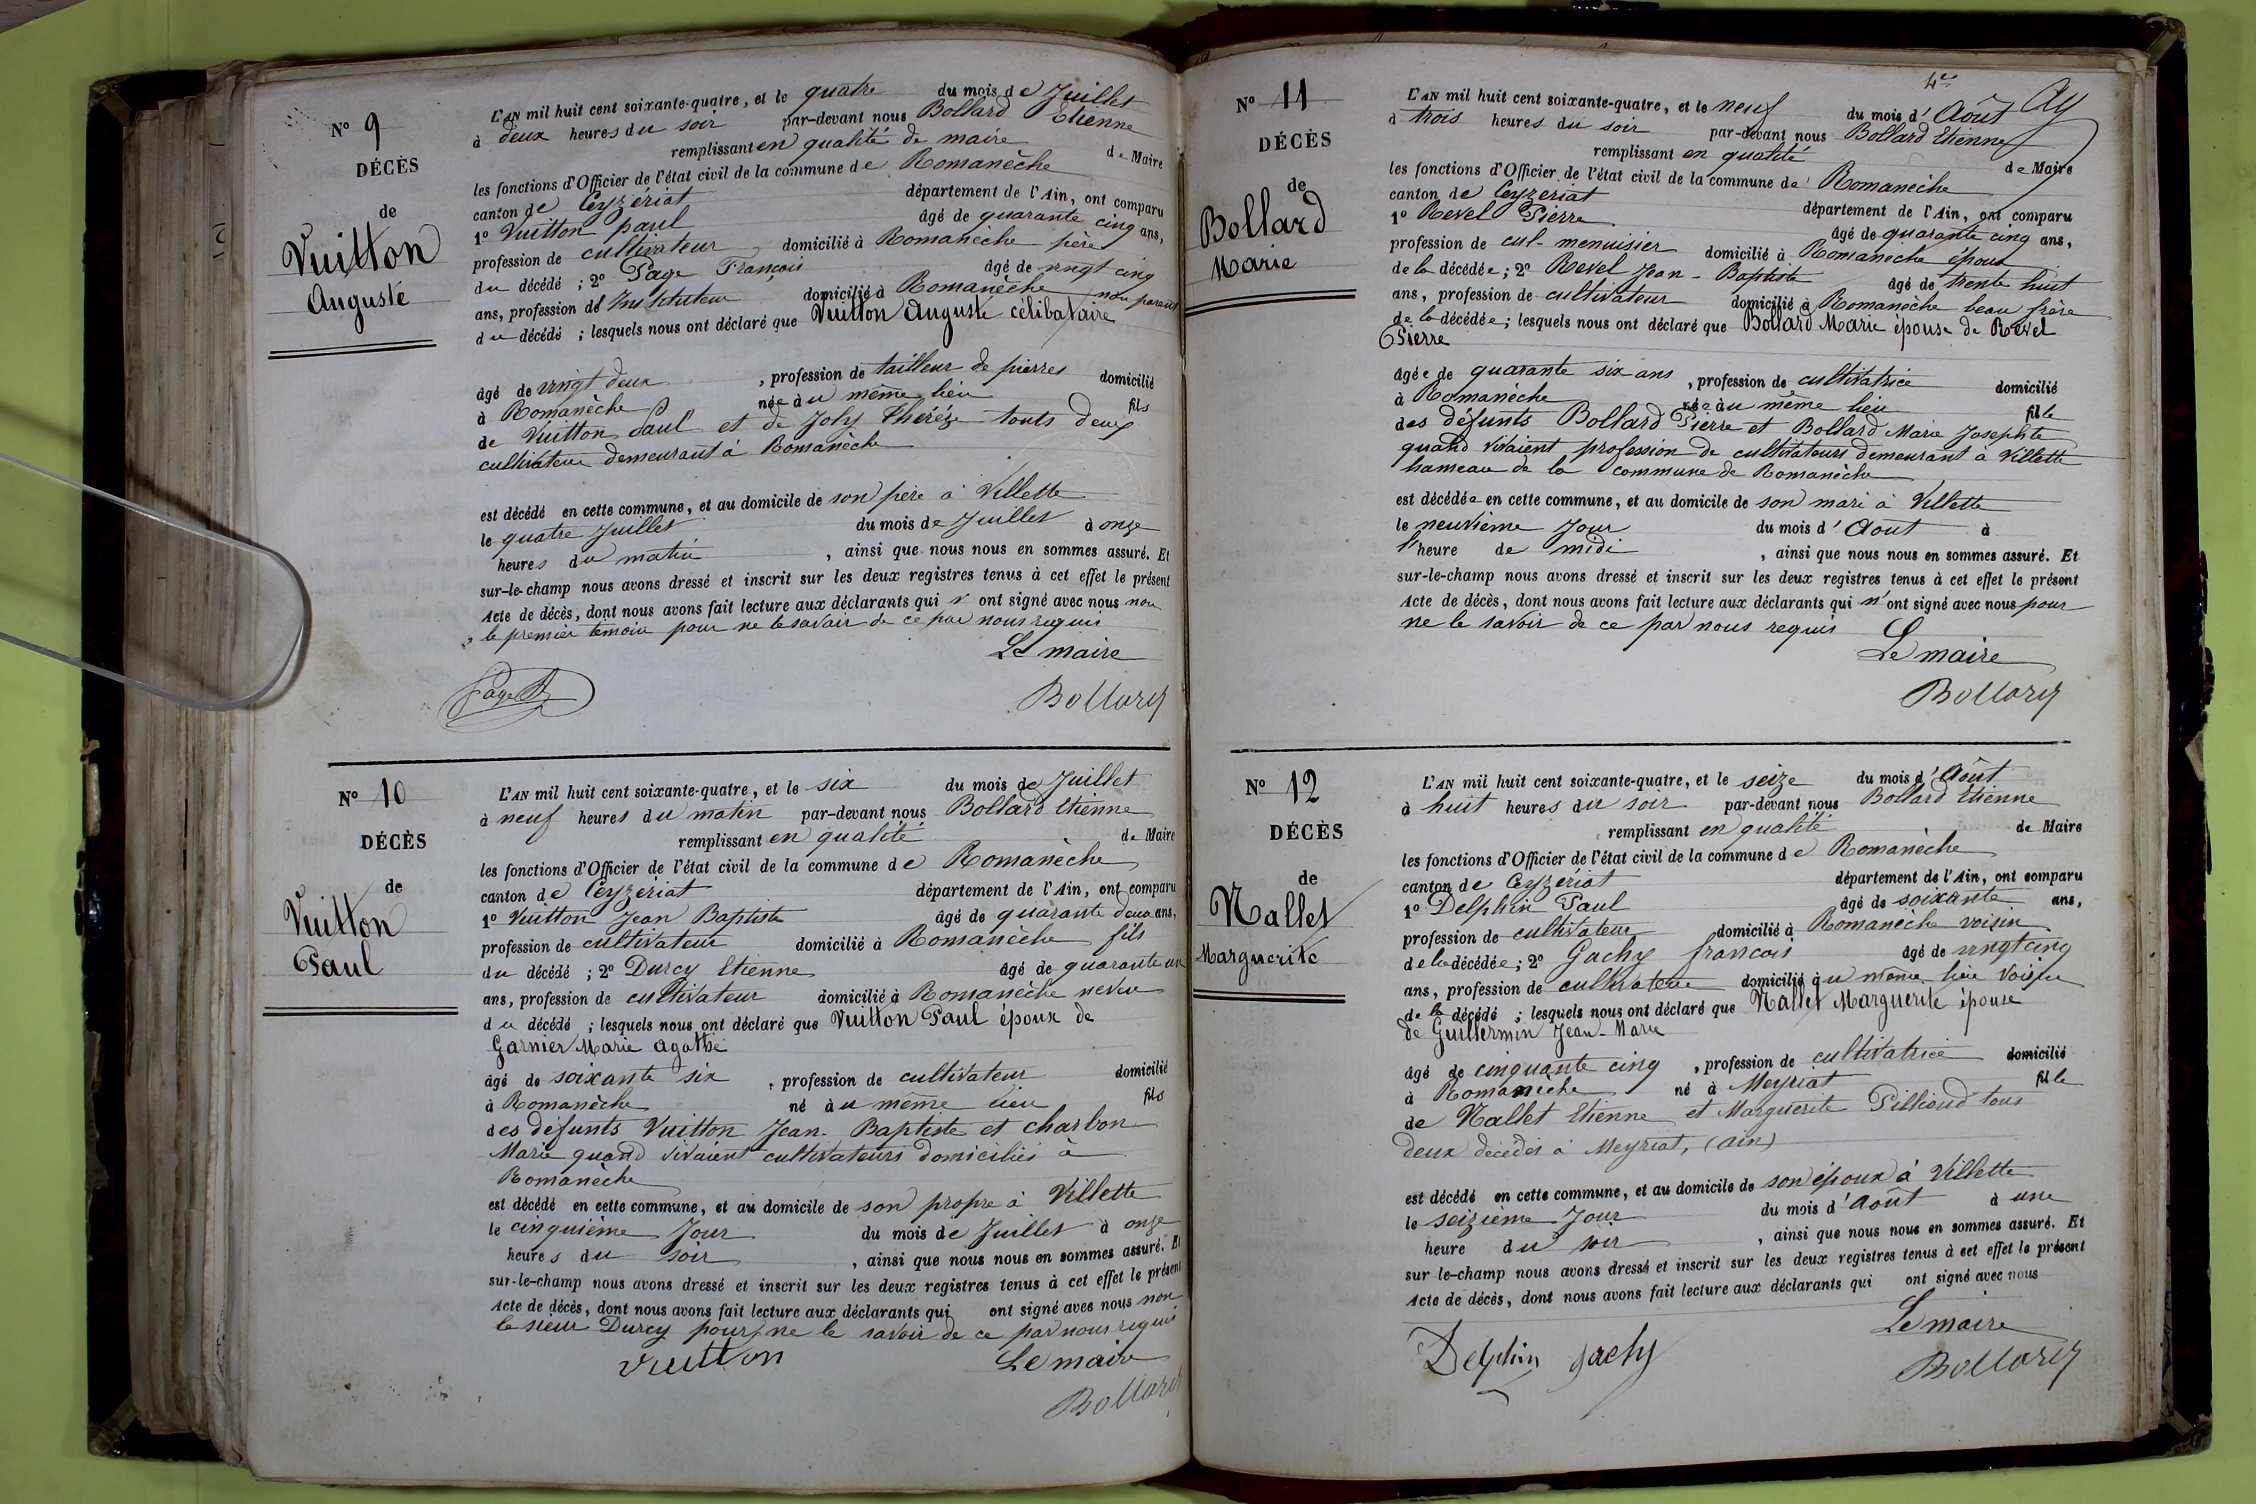 N° 9
DÉCÈS
de
Vuitton
Auguste
L'AN mil huit cent soixante-quatre, et le quatre du mois de Juillet
à deux heures du soir par-devant nous Bollard Etienne
remplissant en qualité de maire de Maire
les fonctions d'Officier de l'état civil de la commune de Romanèche
canton de Ceyzériat département de l'Ain, ont comparu
1° Vuitton paul âgé de quarante cinq ans,
profession de cultivateur domicilié à Romanèche père
du décédé ; 2° Page François âgé de vingt cinq
ans, profession de Instituteur domicilié à Romanèche non parent
du décédé ; lesquels nous ont déclaré que Vuitton Auguste célibataire
âgé de vingt deux , profession de tailleur de pierres domicilié
à Romanèche née au même lieu fils
de Vuitton Paul et de Joly Thérèze touts deux
cultivateur demeurant à Romanèche
est décédé en cette commune, et au domicile de son père à Villette
le quatre Juillet du mois de Juillet à onze
heures du matin , ainsi que nous nous en sommes assuré. Et
sur-le-champ nous avons dressé et inscrit sur les deux registres tenus à cet effet le présent
Acte de décès, dont nous avons fait lecture aux déclarants qui ont signé avec nous non
le premier temoin pour ne le savoir de ce par nous requis
Le maire
Page
Bollard
N° 10
DÉCÈS
de
Vuitton
Paul
L'AN mil huit cent soixante-quatre, et le six du mois de Juillet
à neuf heures du matin par-devant nous Bollard Etienne
remplissant en qualité de Maire
les fonctions d'Officier de l'état civil de la commune de Romanèche
canton de Ceyzériat département de l'Ain, ont comparu
1° Vuitton Jean Baptiste âgé de quarante deux ans,
profession de cultivateur domicilié à Romanèche fils
du décédé ; 2° Durcy Etienne âgé de quarante un
ans, profession de cultivateur domicilié à Romanèche neveu
du décédé ; lesquels nous ont déclaré que Vuitton Paul époux de
Garnier Marie Agathe
âgé de soixante six , profession de cultivateur domicilié
à Romanèche né au même lieu fils
des défunts Vuitton Jean-Baptiste et charbon
Marie quand vivaient cultivateurs domiciliés à
Romanèche
est décédé en cette commune, et au domicile de son propre à Villette
le cinquième Jour du mois de Juillet à onze
heures du soir , ainsi que nous nous en sommes assuré. Et
sur-le-champ nous avons dressé et inscrit sur les deux registres tenus à cet effet le présent
Acte de décès, dont nous avons fait lecture aux déclarants qui ont signé avec nous non
le sieur Durcy pour ne le savoir de ce par nous requis
Vuitton Le maire
Bollard
4e
N° 11
DÉCÈS
de
Bollard
Marie
L'AN mil huit cent soixante-quatre, et le neuf du mois d'Août
à trois heures du soir par-devant nous Bollard Etienne
remplissant en qualité de Maire
les fonctions d'Officier de l'état civil de la commune de Romanèche
canton de Ceyzériat département de l'Ain, ont comparu
1° Revel Pierre âgé de quarante cinq ans,
profession de cul- menuisier domicilié à Romanèche époux
de la décédée ; 2° Revel Jean-Baptiste âgé de trente huit
ans, profession de cultivateur domicilié à Romanèche beau frère
de la décédée ; lesquels nous ont déclaré que Bollard Marie épouse de Revel
Pierre
âgée de quarante six ans , profession de cultivatrice domicilié
à Romanèche née au même lieu fille
des défunts Bollard Pierre et Bollard Marie Josephte
quand vivaient profession de cultivateurs demeurant à Villette
hameau de la commune de Romanèche
est décédée en cette commune, et au domicile de son mari à Villette
le neuvième Jour du mois d'Aout à
l'heure de midi , ainsi que nous nous en sommes assuré. Et
sur-le-champ nous avons dressé et inscrit sur les deux registres tenus à cet effet le présent
Acte de décès, dont nous avons fait lecture aux déclarants qui n'ont signé avec nous pour
ne le savoir de ce par nous requis
Le maire
Bollard
N° 12
DÉCÈS
de
Nallet
Marguerite
L'AN mil huit cent soixante-quatre, et le seize du mois d'Août
à huit heures du soir par-devant nous Bollard Etienne
remplissant en qualité de Maire
les fonctions d'Officier de l'état civil de la commune de Romanèche
canton de Ceyzériat département de l'Ain, ont comparu
1° Delphin Paul âgé de soixante ans,
profession de cultivateur domicilié à Romanèche voisin
de la décédée ; 2° Gachy francois âgé de vingt cinq
ans, profession de cultivateur domicilié au même lieu voisin
de la décédé ; lesquels nous ont déclaré que Nallet Marguerite épouse
de Guillermin Jean-Marie
âgé de cinquante cinq , profession de cultivatrice domicilié
à Romanèche né à Meyriat fille
de Nallet Etienne et Marguerite Pilliond tous
deux décédés à Meyriat, (ain)
est décédé en cette commune, et au domicile de son époux à Villette
le seizième Jour du mois d'Août à une
heure du soir , ainsi que nous nous en sommes assuré. Et
sur-le-champ nous avons dressé et inscrit sur les deux registres tenus à cet effet le présent
Acte de décès, dont nous avons fait lecture aux déclarants qui ont signé avec nous
Le maire
Delphin gachy
Bollard